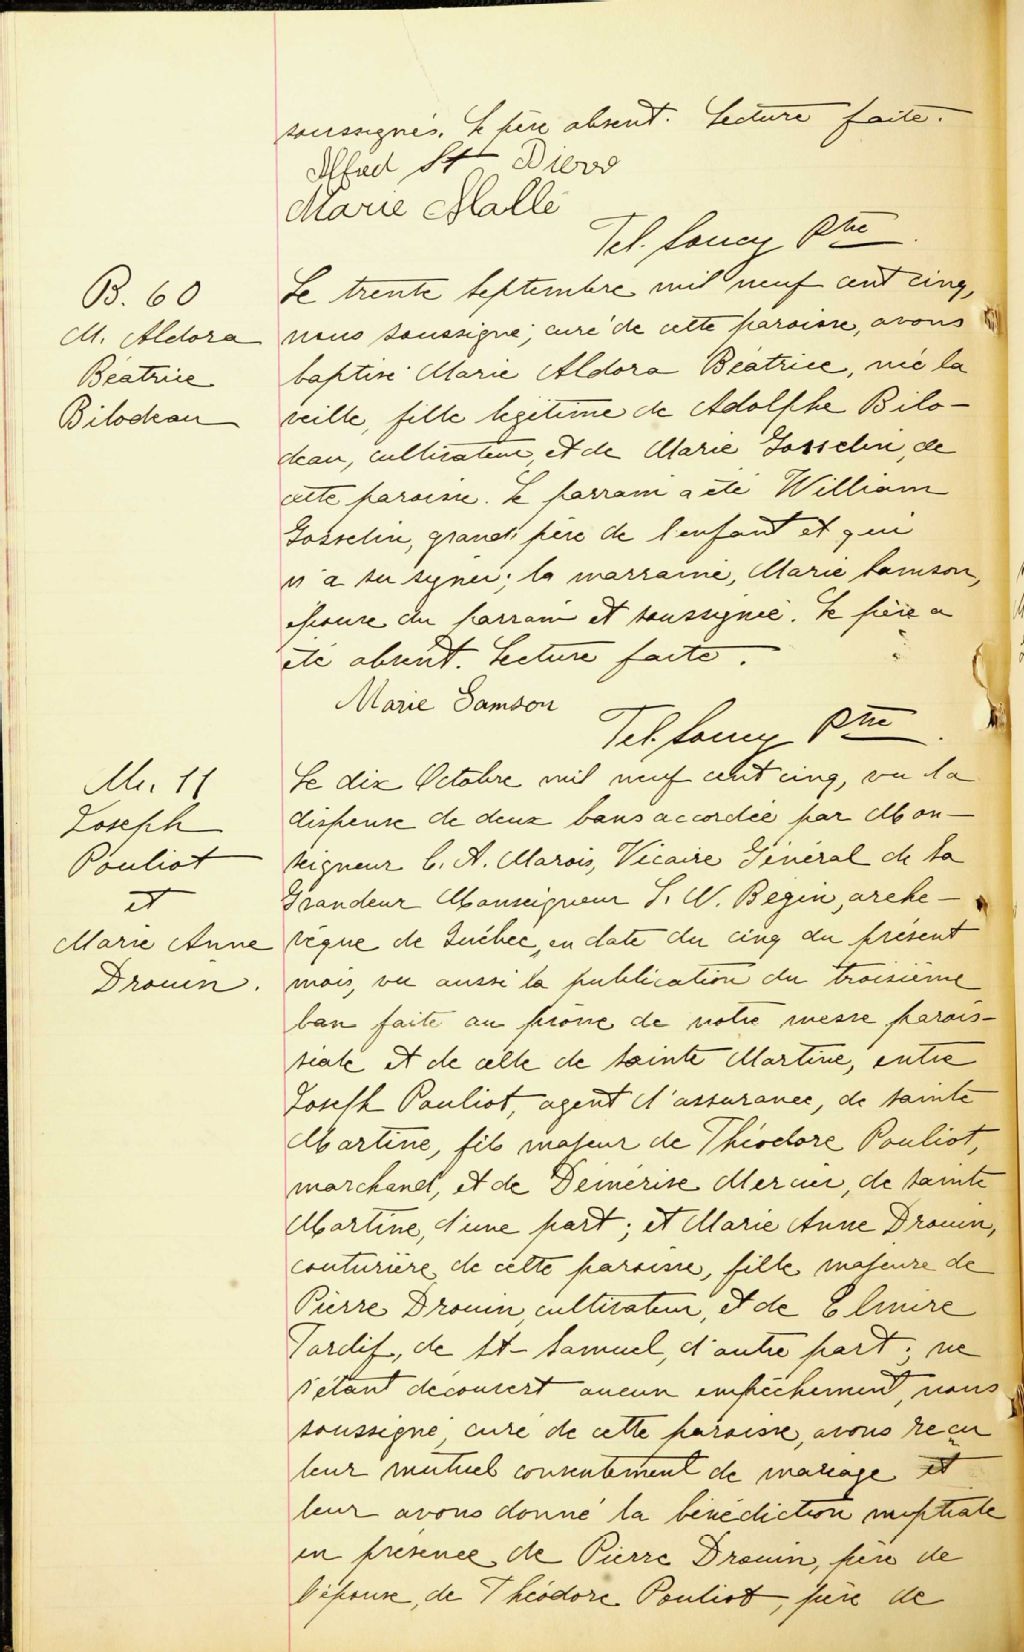 soussignés. Le père absent. Lecture faite.
Alfred St Pierre
Marie Hallé
Tel. Soucy Ptre
B. 60
M. Aldora
Béatrice
Bilodeau
Le trente Septembre mil neuf cent cinq,
nous soussigné, curé de cette paroisse, avons
baptisé Marie Aldora Béatrice, née la
veille, fille légitime de Adolphe Bilo-
deau, cultivateur, et de Marie Gosselin, de
cette paroisse. Le parrain a été William
Gosselin, grand père de l'enfant et qui
n'a su signer; la marraine, Marie Samson,
épouse du parrain et soussignée. Le père a
été absent. Lecture faite.
Marie Samson
Tel. Soucy Ptre
M. 11
Joseph
Pouliot
et
Marie Anne
Drouin.
Le dix Octobre mil neuf cent cinq, vu la
dispense de deux bans accordée par Mon-
seigneur C. A. Marois, Vicaire Général de Sa
Grandeur Monseigneur L. N. Bégin, arche-
vêque de Québec, en date du cinq du présent
mois, vu aussi la publication du troisième
ban faite au prône de notre messe parois-
siale et de celle de Sainte Martine, entre
Joseph Pouliot, agent d'assurance, de Sainte
Martine, fils majeur de Théodore Pouliot,
marchand, et de Démérise Mercier, de Sainte
Martine, d'une part; et Marie Anne Drouin,
couturière de cette paroisse, fille majeure de
Pierre Drouin, cultivateur, et de Elmire
Tardif, de St-Samuel, d'autre part; ne
s'étant découvert aucun empêchement, nous
soussigné, curé de cette paroisse, avons reçu
leur mutuel consentement de mariage et
leur avons donné la bénédiction nuptiale
en présence de Pierre Drouin, père de
l'épouse, de Théodore Pouliot, père de